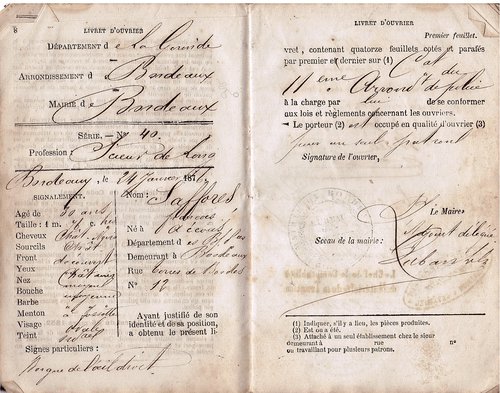 8 LIVRET D'OUVRIER
DÉPARTEMENT d e La Gironde
ARRONDISSEMENT d e Bordeaux
MAIRIE d e Bordeaux
SÉRIE. — No 40.
Profession: Scieur de Long
Bordeaux, le 24 Janvier 187
SIGNALEMENT.
Nom: Saffores
Agé de 30 ans
Taille: 1 m.
Né à
Cheveux
Sourcils
Département d es
Front découvert
Demeurant à Bordeaux
Yeux
Rue
Nez moyen
No 12
Bouche moyenne
Barbe
Menton à fossette
Visage ovale
Teint
Ayant justifié de son
identité et de sa position,
a obtenu le présent li-
Signes particuliers:
Borgne de l'œil droit
LIVRET D'OUVRIER
Premier feuillet.
vret, contenant quatorze feuillets cotés et parafés
par premier et dernier sur (1) L'at. du
11eme Arrond. de police
à la charge par lui de se conformer
aux lois et règlements concernant les ouvriers.
Le porteur (2) est occupé en qualité d'ouvrier (3)
pour un seul patron
Signature de l'ouvrier,
Le Maire,
Sceau de la mairie:
(1) Indiquer, s'il y a lieu, les pièces produites.
(2) Est ou a été.
(3) Attaché à un seul établissement chez le sieur
demeurant à rue no
ou travaillant pour plusieurs patrons.